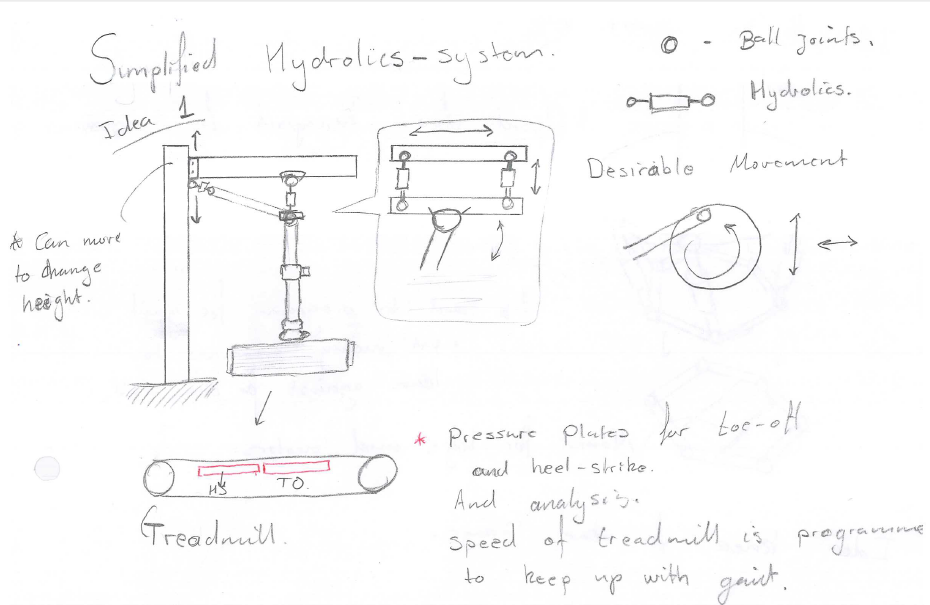 Simplified Hydrolics-system.
Idea 1
o - Ball joints.
Hydrolics.
Desirable Movement
* Can move
to change
height.
HS TO.
Treadmill.
* Pressure plates for toe-off
and heel-strike.
And analysis.
Speed of treadmill is programme
to keep up with gait.